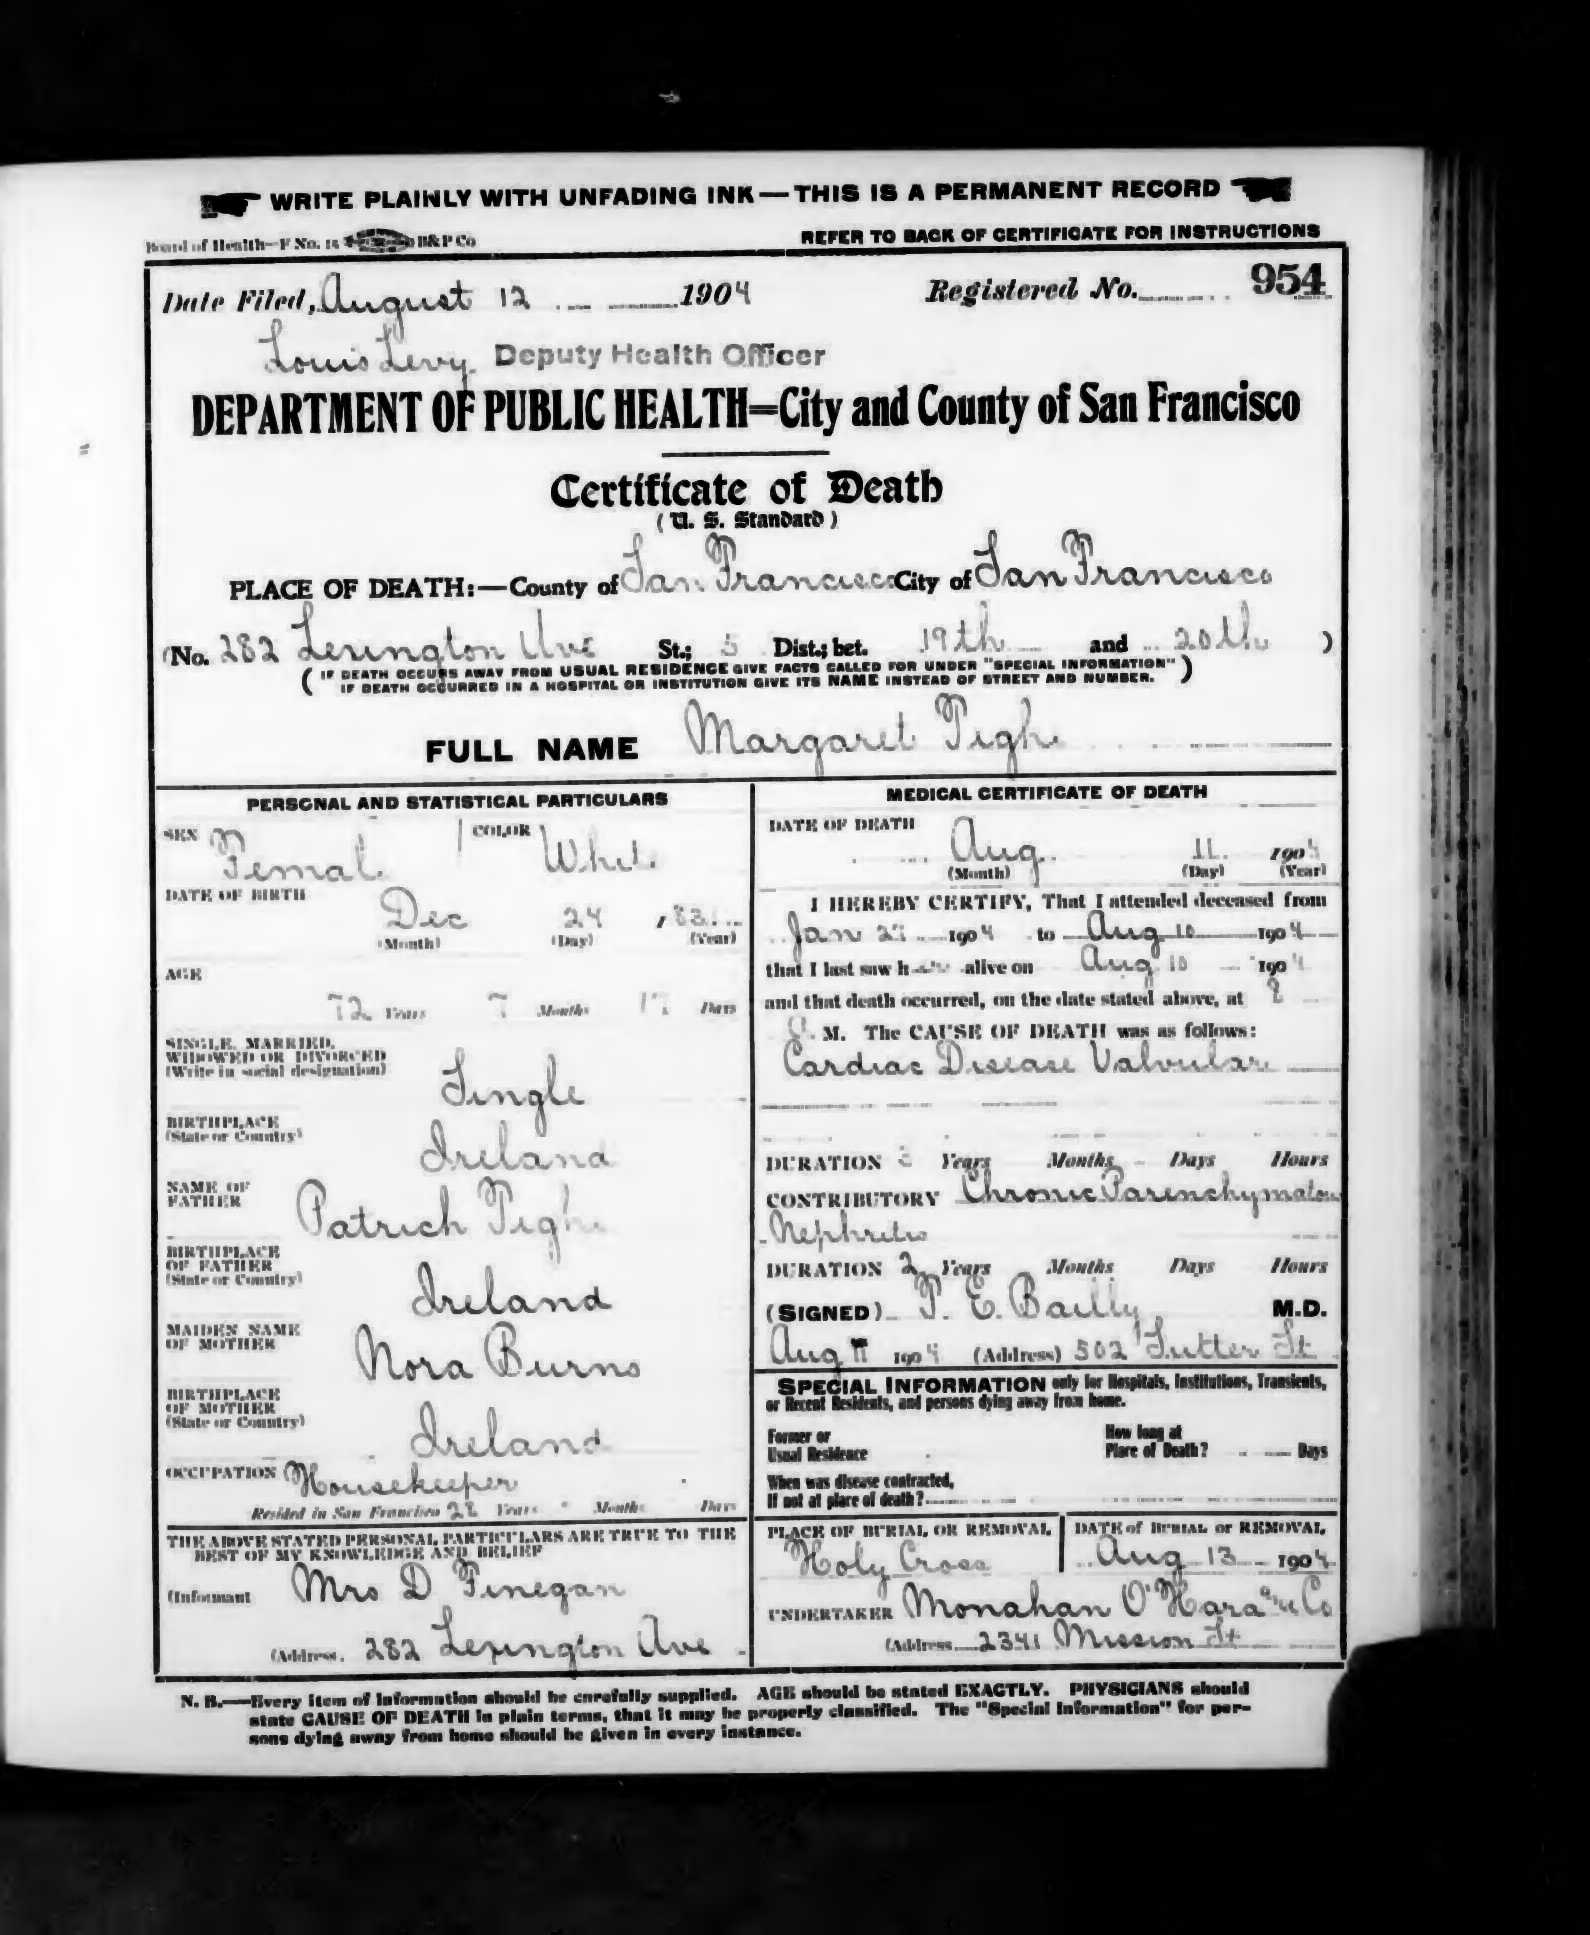 WRITE PLAINLY WITH UNFADING INK—THIS IS A PERMANENT RECORD
Board of Health—F No. 15 B&P Co
REFER TO BACK OF CERTIFICATE FOR INSTRUCTIONS
Date Filed, August 12 1904 Registered No. 954
Louis Levy Deputy Health Officer
DEPARTMENT OF PUBLIC HEALTH=City and County of San Francisco
Certificate of Death
(U. S. Standard)
PLACE OF DEATH:—County of San Francisco City of San Francisco
(No. 282 Lexington Ave St.; 5 Dist.; bet. 19th and 20th )
( IF DEATH OCCURS AWAY FROM USUAL RESIDENCE GIVE FACTS CALLED FOR UNDER "SPECIAL INFORMATION" )
IF DEATH OCCURRED IN A HOSPITAL OR INSTITUTION GIVE ITS NAME INSTEAD OF STREET AND NUMBER.
FULL NAME Margaret Tighe
PERSONAL AND STATISTICAL PARTICULARS
SEX Female COLOR White
DATE OF BIRTH
Dec 24 , 831
(Month) (Day) (Year)
AGE
72 Years 7 Months 17 Days
SINGLE, MARRIED,
WIDOWED OR DIVORCED
(Write in social designation)
Single
BIRTHPLACE
(State or Country)
Ireland
NAME OF
FATHER
Patrick Tighe
BIRTHPLACE
OF FATHER
(State or Country)
Ireland
MAIDEN NAME
OF MOTHER
Nora Burns
BIRTHPLACE
OF MOTHER
(State or Country)
Ireland
OCCUPATION Housekeeper
Resided in San Francisco Years Months Days
THE ABOVE STATED PERSONAL PARTICULARS ARE TRUE TO THE
BEST OF MY KNOWLEDGE AND BELIEF
(Informant Mrs D Finegan
(Address. 282 Lexington Ave
MEDICAL CERTIFICATE OF DEATH
DATE OF DEATH
Aug 11 1904
(Month) (Day) (Year)
I HEREBY CERTIFY, That I attended deceased from
Jan 1904 to Aug 10 1904
that I last saw her alive on Aug 10 1904
and that death occurred, on the date stated above, at 8
M. The CAUSE OF DEATH was as follows:
Cardiac Disease Valvular
DURATION Years Months Days Hours
CONTRIBUTORY Chronic Parenchymatous
Nephritis
DURATION 2 Years Months Days Hours
(SIGNED) P. E. Bailly M.D.
Aug 11 1904 (Address) 502 Sutter St
SPECIAL INFORMATION only for Hospitals, Institutions, Transients,
or Recent Residents, and persons dying away from home.
Former or
Usual Residence
How long at
Place of Death? Days
When was disease contracted,
If not at place of death?
PLACE OF BURIAL OR REMOVAL
Holy Cross
DATE of BURIAL or REMOVAL
Aug 13 1904
UNDERTAKER Monahan O'Hara and Co
(Address 2341 Mission St
N. B.—Every item of information should be carefully supplied. AGE should be stated EXACTLY. PHYSICIANS should
state CAUSE OF DEATH in plain terms, that it may be properly classified. The "Special Information" for per-
sons dying away from home should be given in every instance.